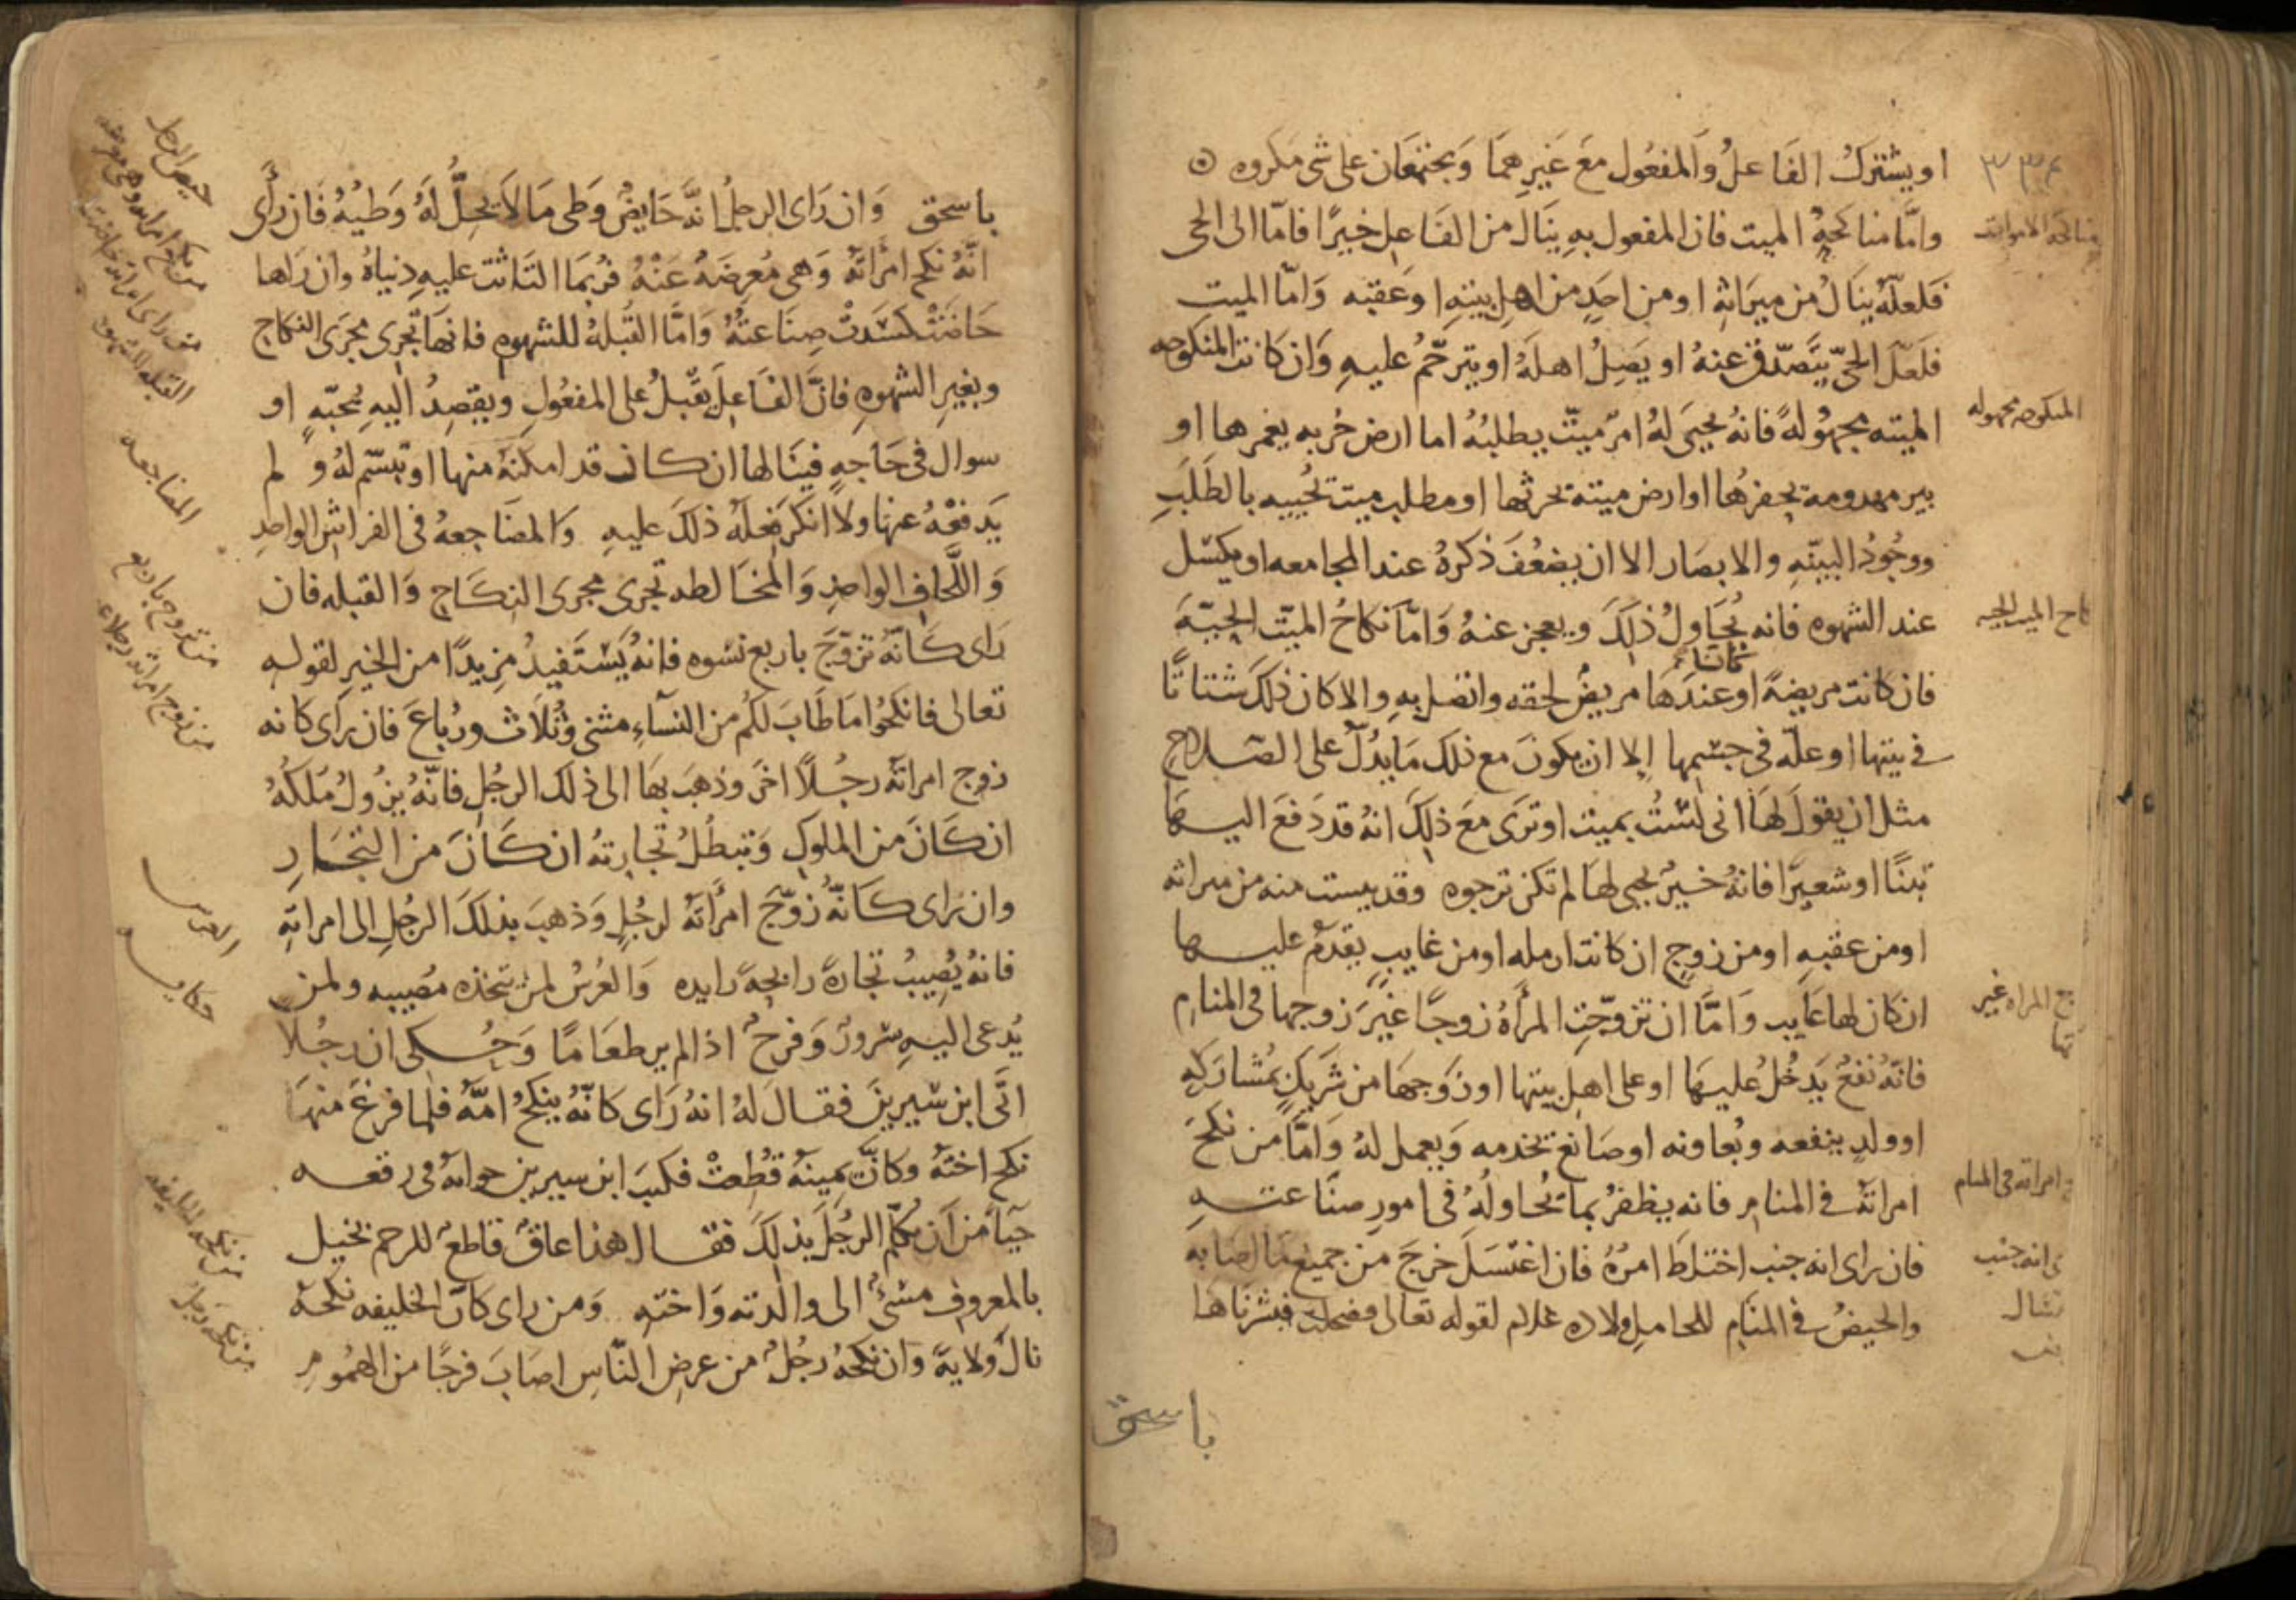 او يشترك الفاعل والمفعول مع غيرهما ويجتمعان على شى مكروه
وامّا مناكحه الميت فان المفعول به ينال من الفاعل خيرًا فامّا الى الحى
فلعلّه ينال من ميراثه او من احد من اهل بيته او عقبه وامّا الميت
فلعلّ الحىّ يتصدّق عنه او يصل اهله او يترحّم عليه وان كانت المنكوحه
الميته مجهولة فانه يحيى له امر ميّت يطلبه اما ارض خربه يعمرها او
بير مهدومة يحفرها او ارض ميتة يحرثها او مطلب ميت يحييه بالطلب
ووجود البينه والابصار الا ان يضعف ذكره عند المجامعه او يكسل
عند الشهوه فانه يحاول ذلك ويعجز عنه وامّا نكاح الميّت الحيّة
فان كانت مريضة او عندها مريض لحقه واتصل به والا كان ذلك شتاتًا
فى بيتها او علّه فى جسمها الا ان يكون مع ذلك ما يدلّ على الصلاح
مثل ان يقول لها انى لست بميت او ترى مع ذلك انه قد دفع اليها
تبنًا او شعيرًا فانه خير يحيى لها لم تكن ترجوه وقد يست منه من ميراثه
او من عقبه او من زوج ان كانت ارمله او من غايب يقدم عليها
ان كان لها غايب وامّا ان تزوّجت المرأة زوجًا غير زوجها فى المنام
فانه نفع يدخل عليها او على اهل بيتها او زوجها من شريك يشاركه
او ولد ينفعه ويعاونه او صانع يخدمه ويعمل له وامّا من نكح
امراته فى المنام فانه يظفر بما يحاوله فى امور صناعته
فان راى انه جنب اختلط امره فان اغتسل خرج من جميع ما اصابه
والحيض فى المنام للحامل ولاده غلام لقوله تعالى فضحكت فبشرناها
باسحق
٣٣٤
مناكحة الاموات
المنكوحه مجهوله
نكاح الميت الحيه
امراته فى المنام
انه جنب
باسحق وان راى الرجل انّه حايض وطى ما لا يحلّ له وطيه فان رأى
انّه نكح امرأته وهى معرضه عنه فربما التاثت عليه دنياه وان راها
حاضت كسدت صناعته وامّا القبله للشهوه فانها تجرى مجرى النكاح
وبغير الشهوه فانّ الفاعل يقبل على المفعول ويقصد اليه بمحبّه او
سوال فى حاجه فينالها ان كان قد امكنه منها او تبسّم له ولم
يدفعه عنها ولا انكر فعله ذلك عليه والمضاجعه فى الفراش الواحد
واللّحاف الواحد والمخالطه تجرى مجرى النكاح والقبله فان
راى كانّه تزوّج باربع نسوه فانه يستفيد مزيدًا من الخير لقوله
تعالى فانكحوا ما طاب لكم من النسآء مثنى وثلاث ورباع فان رأى كانه
زوج امراته رجلًا اخر وذهب بها الى ذلك الرجل فانّه يزول ملكه
ان كان من الملوك وتبطل تجارته ان كان من التجار
وان راى كانّه زوّج امرأته لرجل وذهب بذلك الرجل الى امراته
فانه يصيب تجارة رابحة زايده والعرس لمن يتخذه مصيبه ولمن
يدعى اليه سرور وفرح اذا لم ير طعامًا وحكى ان رجلًا
اتى ابن سيرين فقال له انه راى كانّه ينكح امّه فلما فرغ منها
نكح اخته وكانّ يمينه قطعت فكتب ابن سيرين جوابه فى رقعه
حيآء من ان يكلّم الرجل بذلك فقال هذا عاق قاطع للرحم بخيل
بالمعروف مسئ الى والدته واخته ومن راى كانّ الخليفه نكحه
نال ولاية وان نكحه رجل من عرض النّاس اصاب فرجًا من الهموم
حيض الرجل
القبله
المضاجعه
من تزوج باربع
العرس
حكايه
من نكحه الخليفه
من نكحه رجل